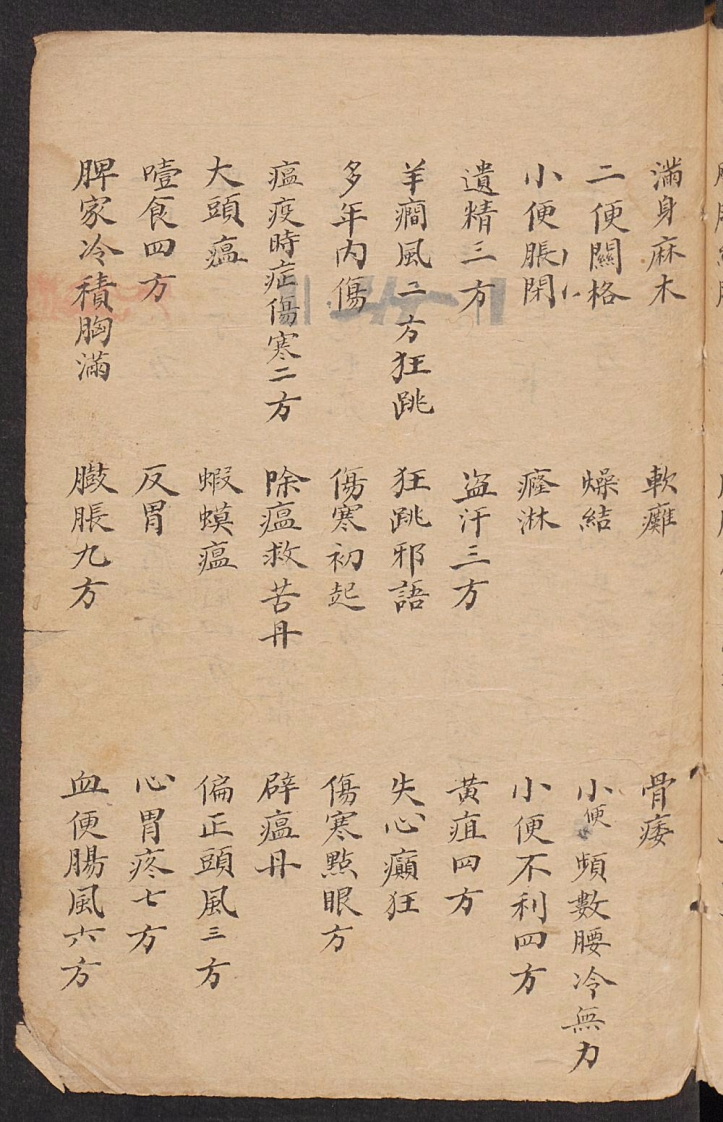 滿身麻木 軟癱 骨痿
二便關格 燥結 小便頻數腰冷無力
小便脹閉 癃淋 小便不利四方
遺精三方 盗汗三方 黃疸四方
羊癎風二方狂跳 狂跳邪語 失心癲狂
多年內傷 傷寒初起 傷寒點眼方
瘟疫時症傷寒二方 除瘟救苦丹 辟瘟丹
大頭瘟 蝦蟆瘟 偏正頭風三方
噎食四方 反胃 心胃疼七方
脾家冷積胸滿 臌脹九方 血便腸風六方